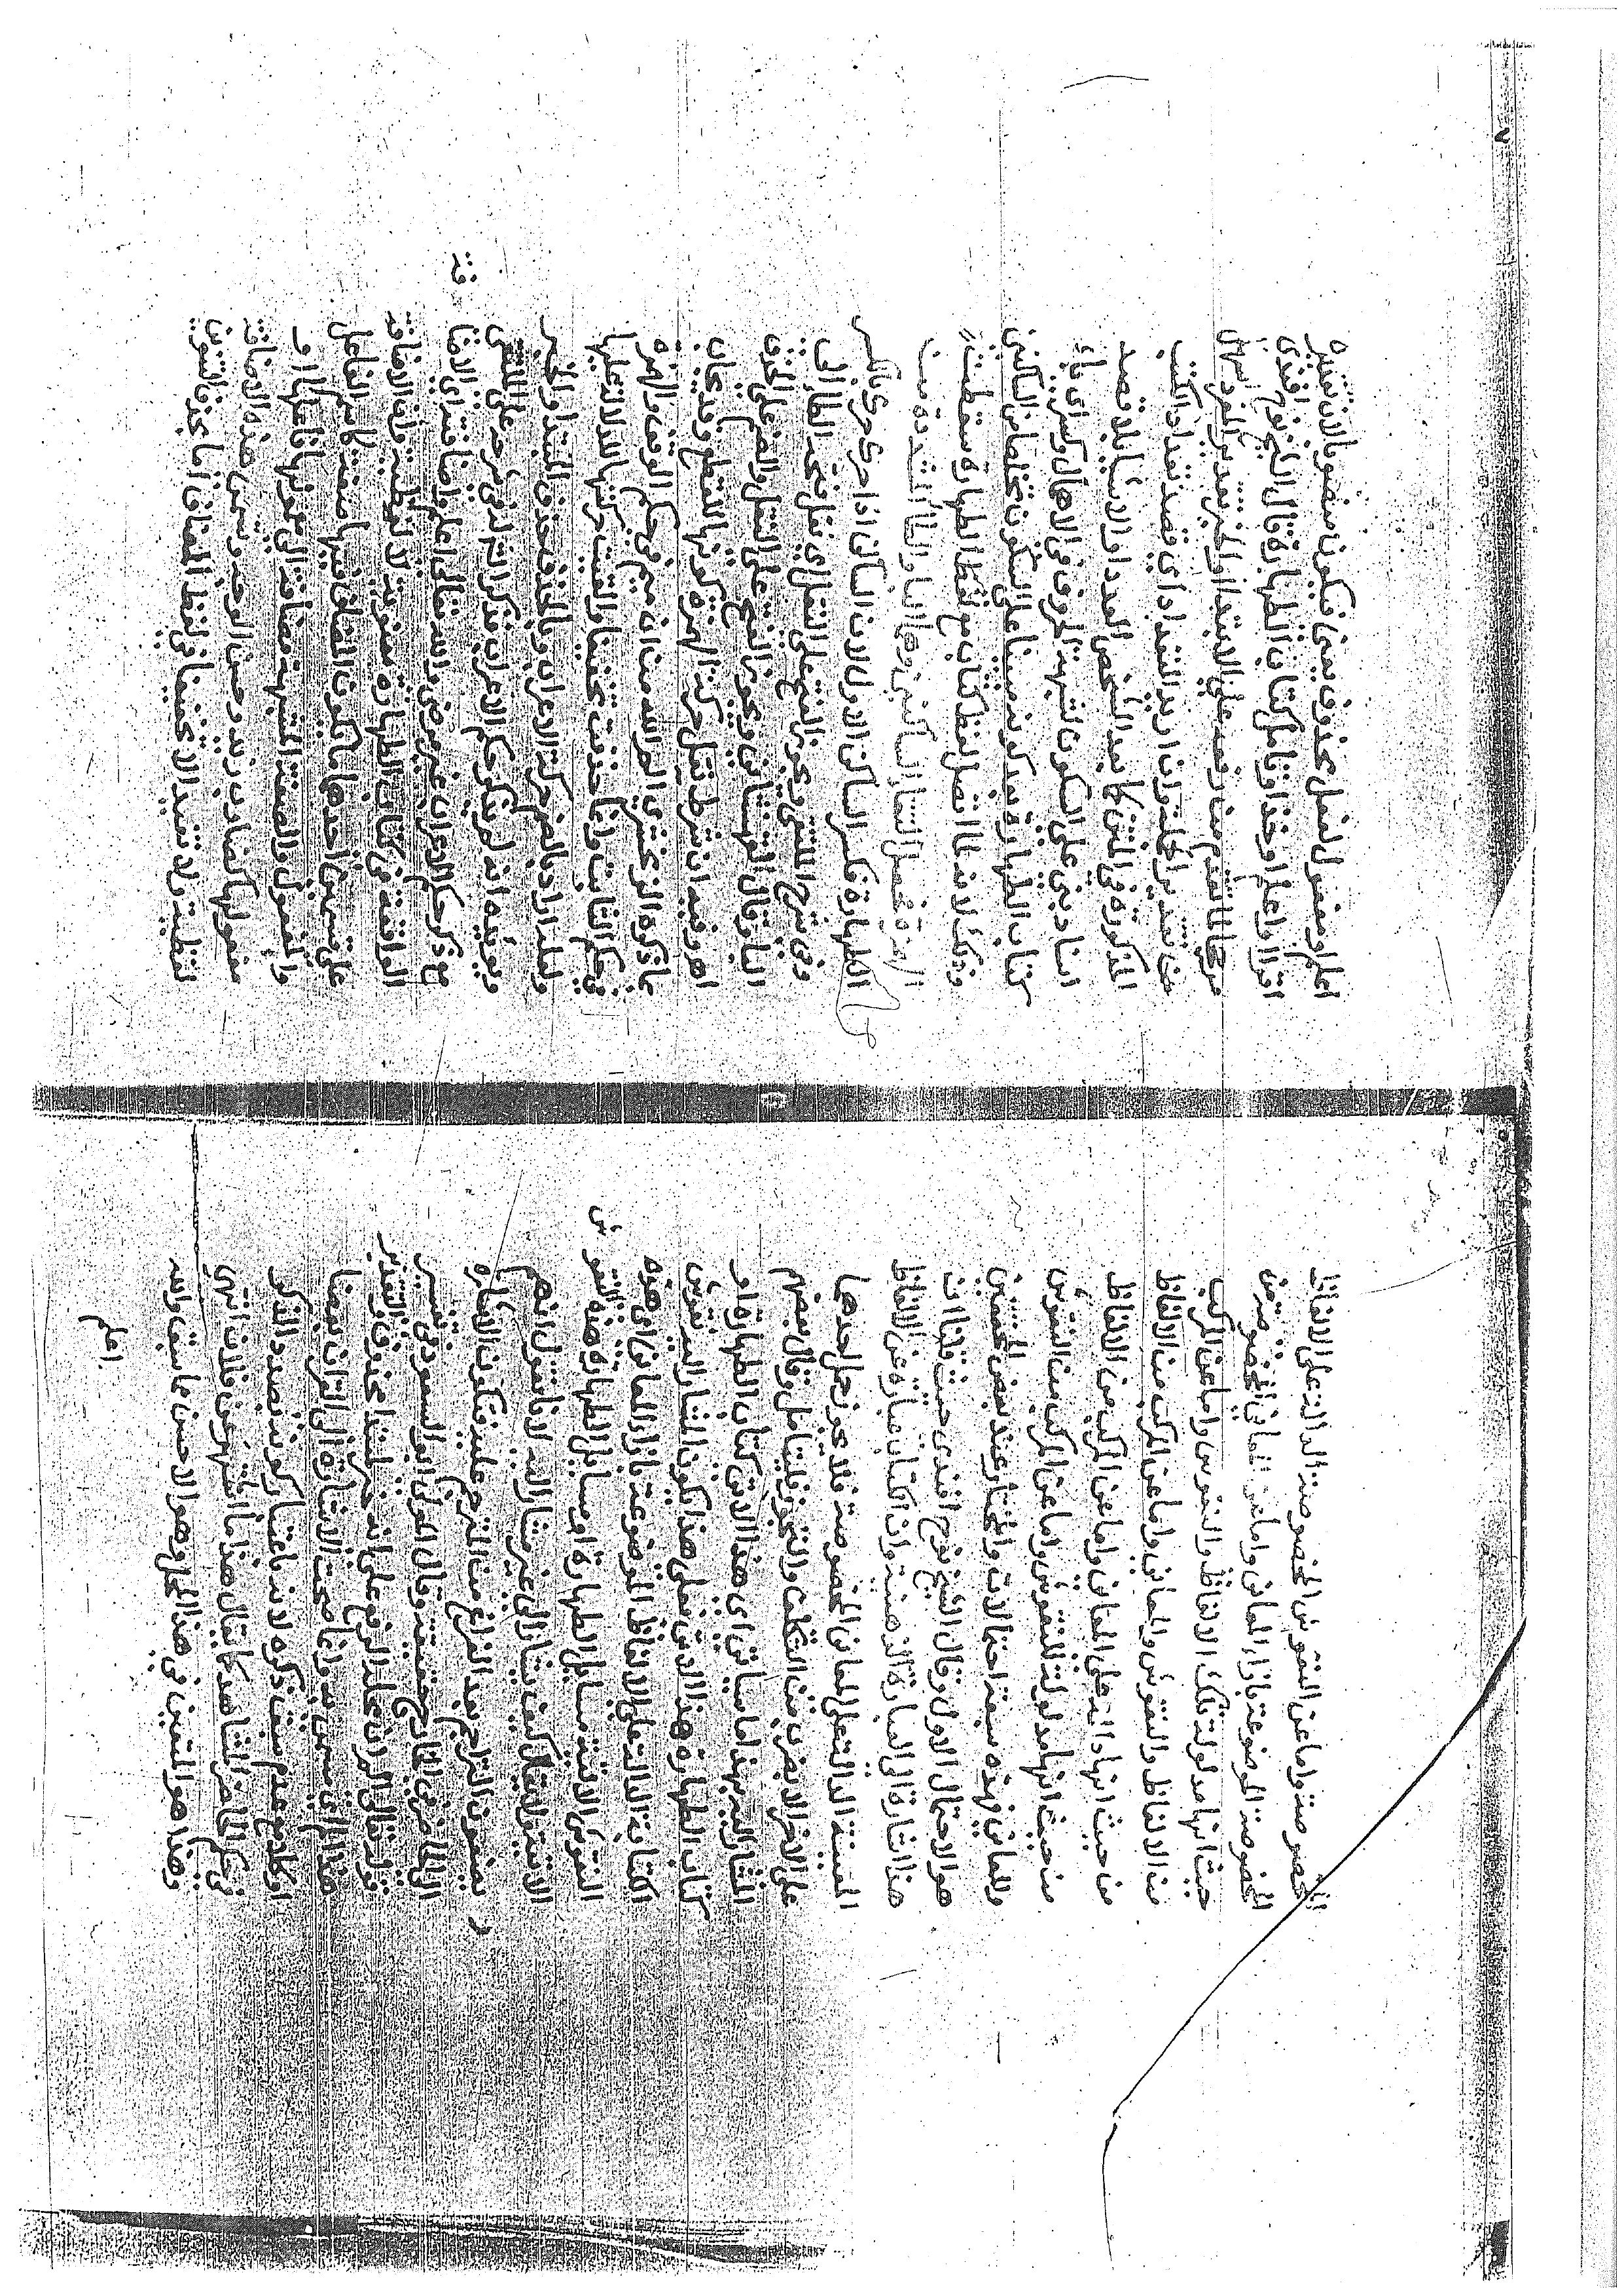 المخصوصة واما عن النقوش المخصوصة الدالة على الالفاظ
المخصوصة الموضوعة بازاء المعاني واما عن المعاني المخصوصة من
حيث انها مدلولة تلك الالفاظ والنقوش واما عن المركب
من الالفاظ والنقوش والمعاني واما عن المركب من الالفاظ
من حيث انها دالة على المعاني واما عن المركب من الالفاظ
من حيث انها مدلولة للنقوش واما عن المركب من النقوش
وللمعاني فهذه سبعة احتمالات والمختار عند بعض المحققين
هو الاحتمال الاول وقال الشيخ نوح افندى حيث قلنا ان
هذا اشارة الى العبارة الذهنية وان الكتاب عبارة عن الالفاظ
المعينة الدالة على المعاني المخصوصة فلا يجوز حمل احدهما
على الاخر الا بضرب من التكلف والتجوز فليتامل وقال بعضهم
المشار اليه بهذا ما سياتي اى هذا الاتي كتاب الطهارة او
كتاب الطهارة هذا الاتي فعلى هذا يكون المشار اليه نقوش
الكتابة الدالة على الالفاظ الموضوعة بازاء المعاني اى هذه
النقوش الاتية مسايل الطهارة او مسايل الطهارة هذه النقوش
الاتية ولا يقال كيف يشار الى غير مشار اليه لانا نقول انهم
يضعون التراجم بعد الفراغ من المترجم عليه فتكون الاشارة
الى الحاضر في الخارج حقيقة وقال المولى ابو السعود في تفسير
قوله تعالى الم ان محله الرفع على انه خبر لمبتدا محذوف والتقدير
هذا الم اي مسمى به وانما صحت الاشارة الى القران بعضا
او كلا مع عدم سبق ذكره لانه باعتبار كونه بصدد الذكر
في حكم الحاضر المشاهد كما يقال هذا ما اشترى فلان انتهى
وهذا هو المتعين في هذا المحل وهو الاحسن مما سبق والله
اعلم
اعلم او مفعول لفعل محذوف يعني فيكون منصوبا لان تقديره
اقرا او اعلم او خذ او هاك كتاب الطهارة قال الشيخ نوح افندى
مرجحا لما تقدم من رفعه على الابتدا او الخبر
من تقدير الجملة وان اريد التعداد اى قصد تعداد الكتب
المذكورة في المتن كما يعد الشخص العدد او الاشيا بلا قصد
اسناد بني على السكون لشبهه الحروف في الاهمال وكسر اى باء
كتاب الطهارة بعد كونه مبنيا على السكون تخلصا من الساكنين
وذلك لانه لما اتصل لفظ كتاب مع لفظ الطهارة سقطت
الهمزة فحصل التقاء الساكنين وهما الباء والطاء المشددة من
الطهارة فكسر الساكن الاول لان الساكن اذا حرك حرك بالكسر
وفي شرح الملتقى ويجوز الفتح على النقل اي نقل فتحة الطا الى
البا وقال القهستاني ويجوز الفتح على النقل والضم على الحذف
اهـ وفيه ان شرط نقل حركة الهمزة كونها للقطع وقد يجاب
بما ذكره الزمخشرى في الم الله من ان ميم في حكم الوقف والهمزة
في حكم الثابت وانما حذفت تخفيفا والقيت حركتها للدلالة عليها
ولعله اراد بالضم حركة الاعراب وبالحذف حذف المبتدا او الخبر
ويؤيده انه لم يذكر حكم الاعراب
مع ذكر حكم الاعراب غير مرضي والله تعالى اعلم واضافته اى الاضا
الواقعة في كتاب الطهارة معنوية لا لفظية وان الاضافة
على قسمين احدهما ما يكون المضاف فيها صفة كاسم الفاعل
والمفعول والصفة المشبهة مضافة الى معمولها فاعلها او
مفعولها كضارب زيد وحسن الوجه وتسمى هذه الاضافة
لفظية ولا تفيد الا تخفيفا في لفظ المضاف اما بحذف التنوين